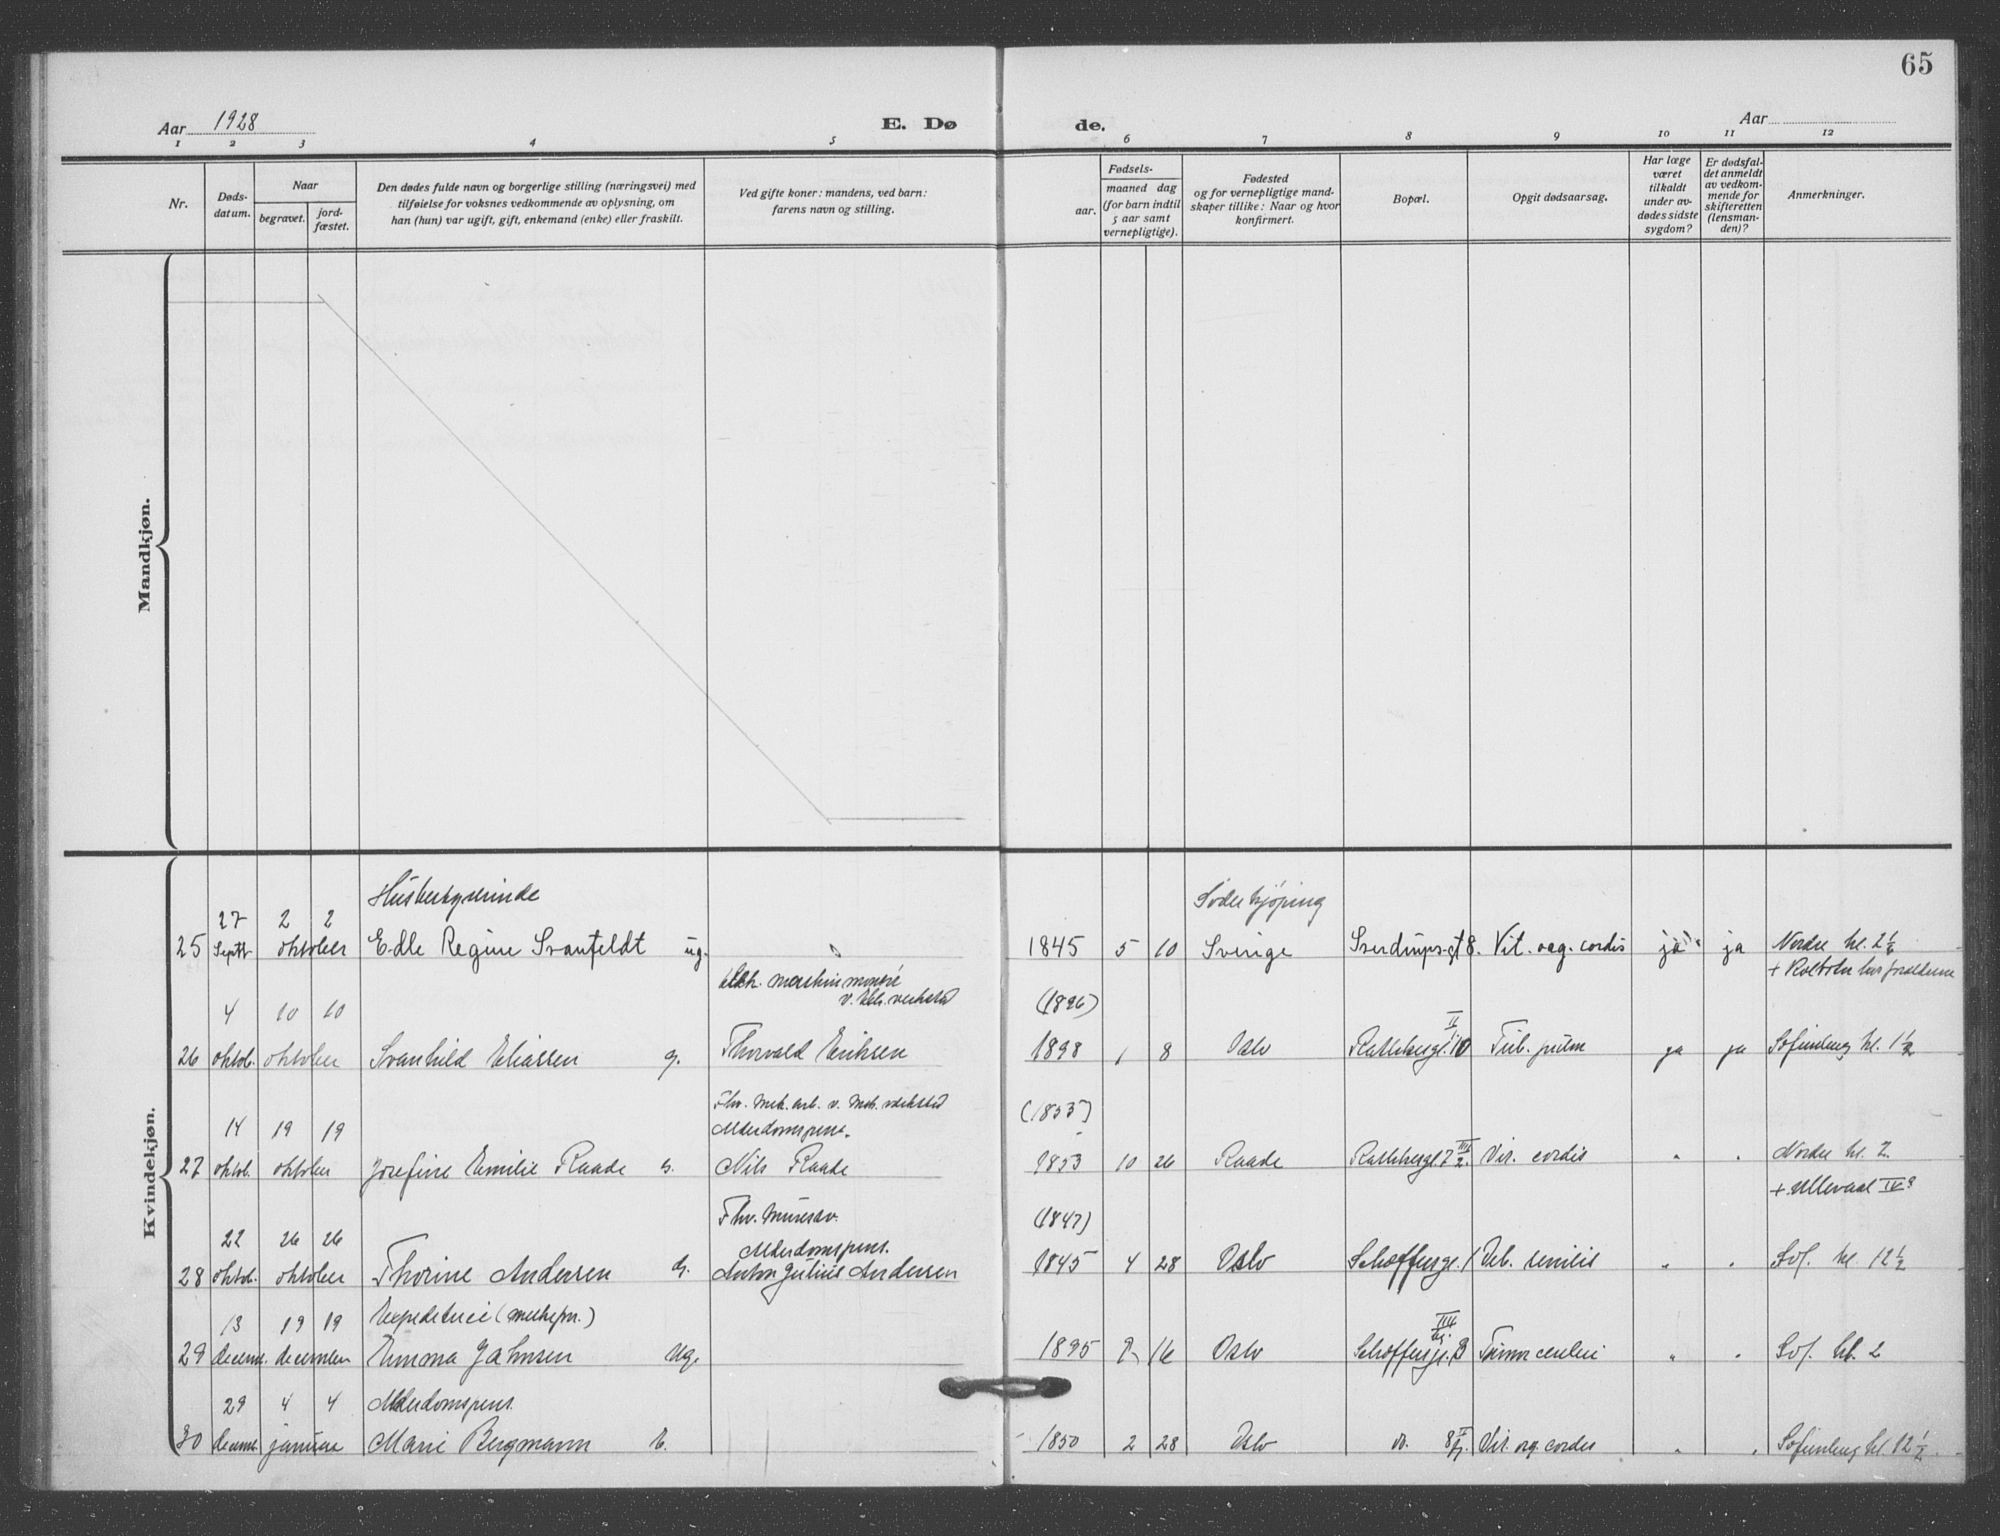 65
Aar 1928
E. Dø de.
Aar
1 2 3 4 5 6 7 8 9 10 11 12
Nr.
Døds-
datum.
Naar
begravet.
jord-
fæstet.
Den dødes fulde navn og borgerlige stilling (næringsvei) med
tilføielse for voksnes vedkommende av oplysning, om
han (hun) var ugift, gift, enkemand (enke) eller fraskilt.
Ved gifte koner: mandens, ved barn:
farens navn og stilling.
Fødsels-
aar.
maaned dag
(for barn indtil
5 aar samt
vernepligtige).
Fødested
og for vernepligtige mand-
skaper tillike: Naar og hvor
konfirmert.
Bopæl.
Opgit dødsaarsag.
Har læge
været
tilkaldt
under av-
dødes sidste
sygdom?
Er dødsfal-
det anmeldt
av vedkom-
mende for
skifteretten
(lensman-
den)?
Anmerkninger.
Mandkjøn.
Kvindekjøn.
Husbestyrerinde Søderkjøping
27 2 2
25 Septb. oktober Edle Regine Svanfeldt ug. 1845 5 10 Sverige Sverdrupsgt 8. Vit. org. cordis ja ja Nordre kl. 2½
+ Rolfstn
v. verksted
4 10 10 (1896)
26 oktob. oktober Svanhild Eliassen g. Thorvald Eriksen 1898 1 8 Oslo Rathkesgt. 10 II Tub. pulm ja ja Sofienberg kl. 1½
Fhv. Mek. arb. v. Mek. verksted
14 19 19 Alderdomspens. (1853)
27 oktob. oktober Josefine Emilie Raade Nils Raade 1853 10 26 Raade Rathkesgt. 7 III Vit. cordis " " Nordre kl. 2
+ Ullevaal IV
Fhv. Murerarb. (1847)
22 26 26 Alderdomspens.
28 oktob. oktober Thorine Andersen Anton Julius Andersen 1845 4 28 Oslo Schøffersgt. 1 Deb. senilis " " Sof. kl. 12½
13 19 19 Expeditrice
29 decemb. december Emma Jahnsen ug. 1895 16 Oslo Schøffersgt. III Tumor cerebri " " Sof. kl. 2
29 4 4 Alderdomspens.
30 decemb. januar Marie Bergmann E. 1850 2 28 Oslo do. 8 Vit. org. cordis " " Sofienberg kl. 12½